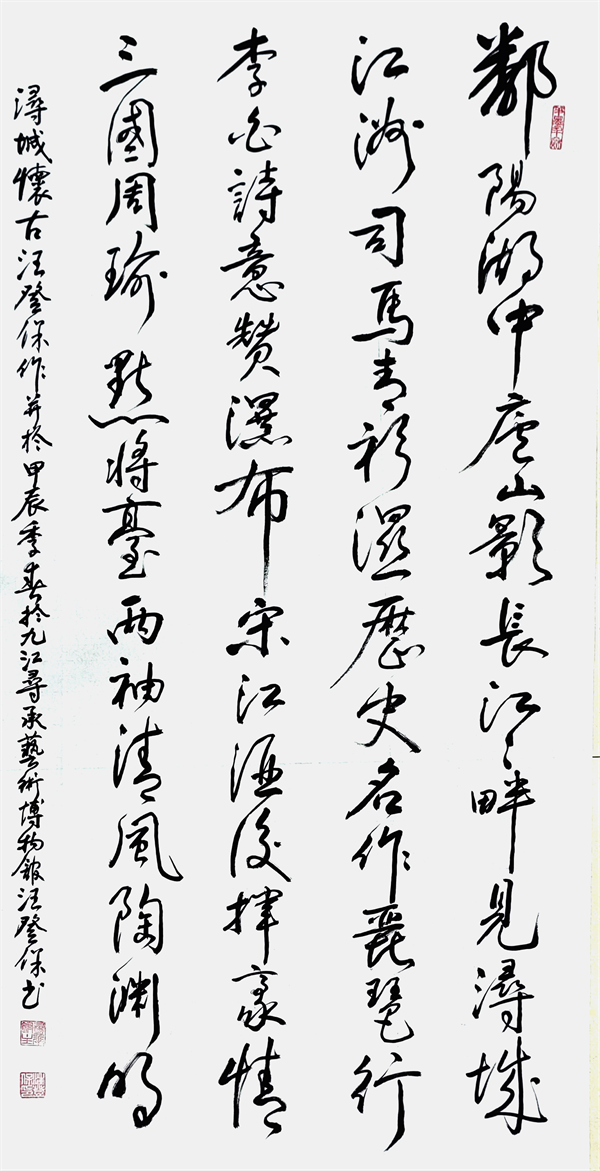 鄱陽湖中廬山影長江江畔見潯城
江洲司馬青衫濕歷史名作琵琶行
李白詩意贊瀑布宋江酒後揮豪情
三國周瑜點將臺兩袖清風陶淵明
潯城懷古汪登保作并於甲辰季春於九江尋承藝術博物館汪登保書